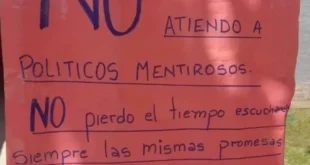 NO ATIENDO A
POLITICOS MENTIROSOS.
NO pierdo el tiempo escuchar
siempre las mismas promesas